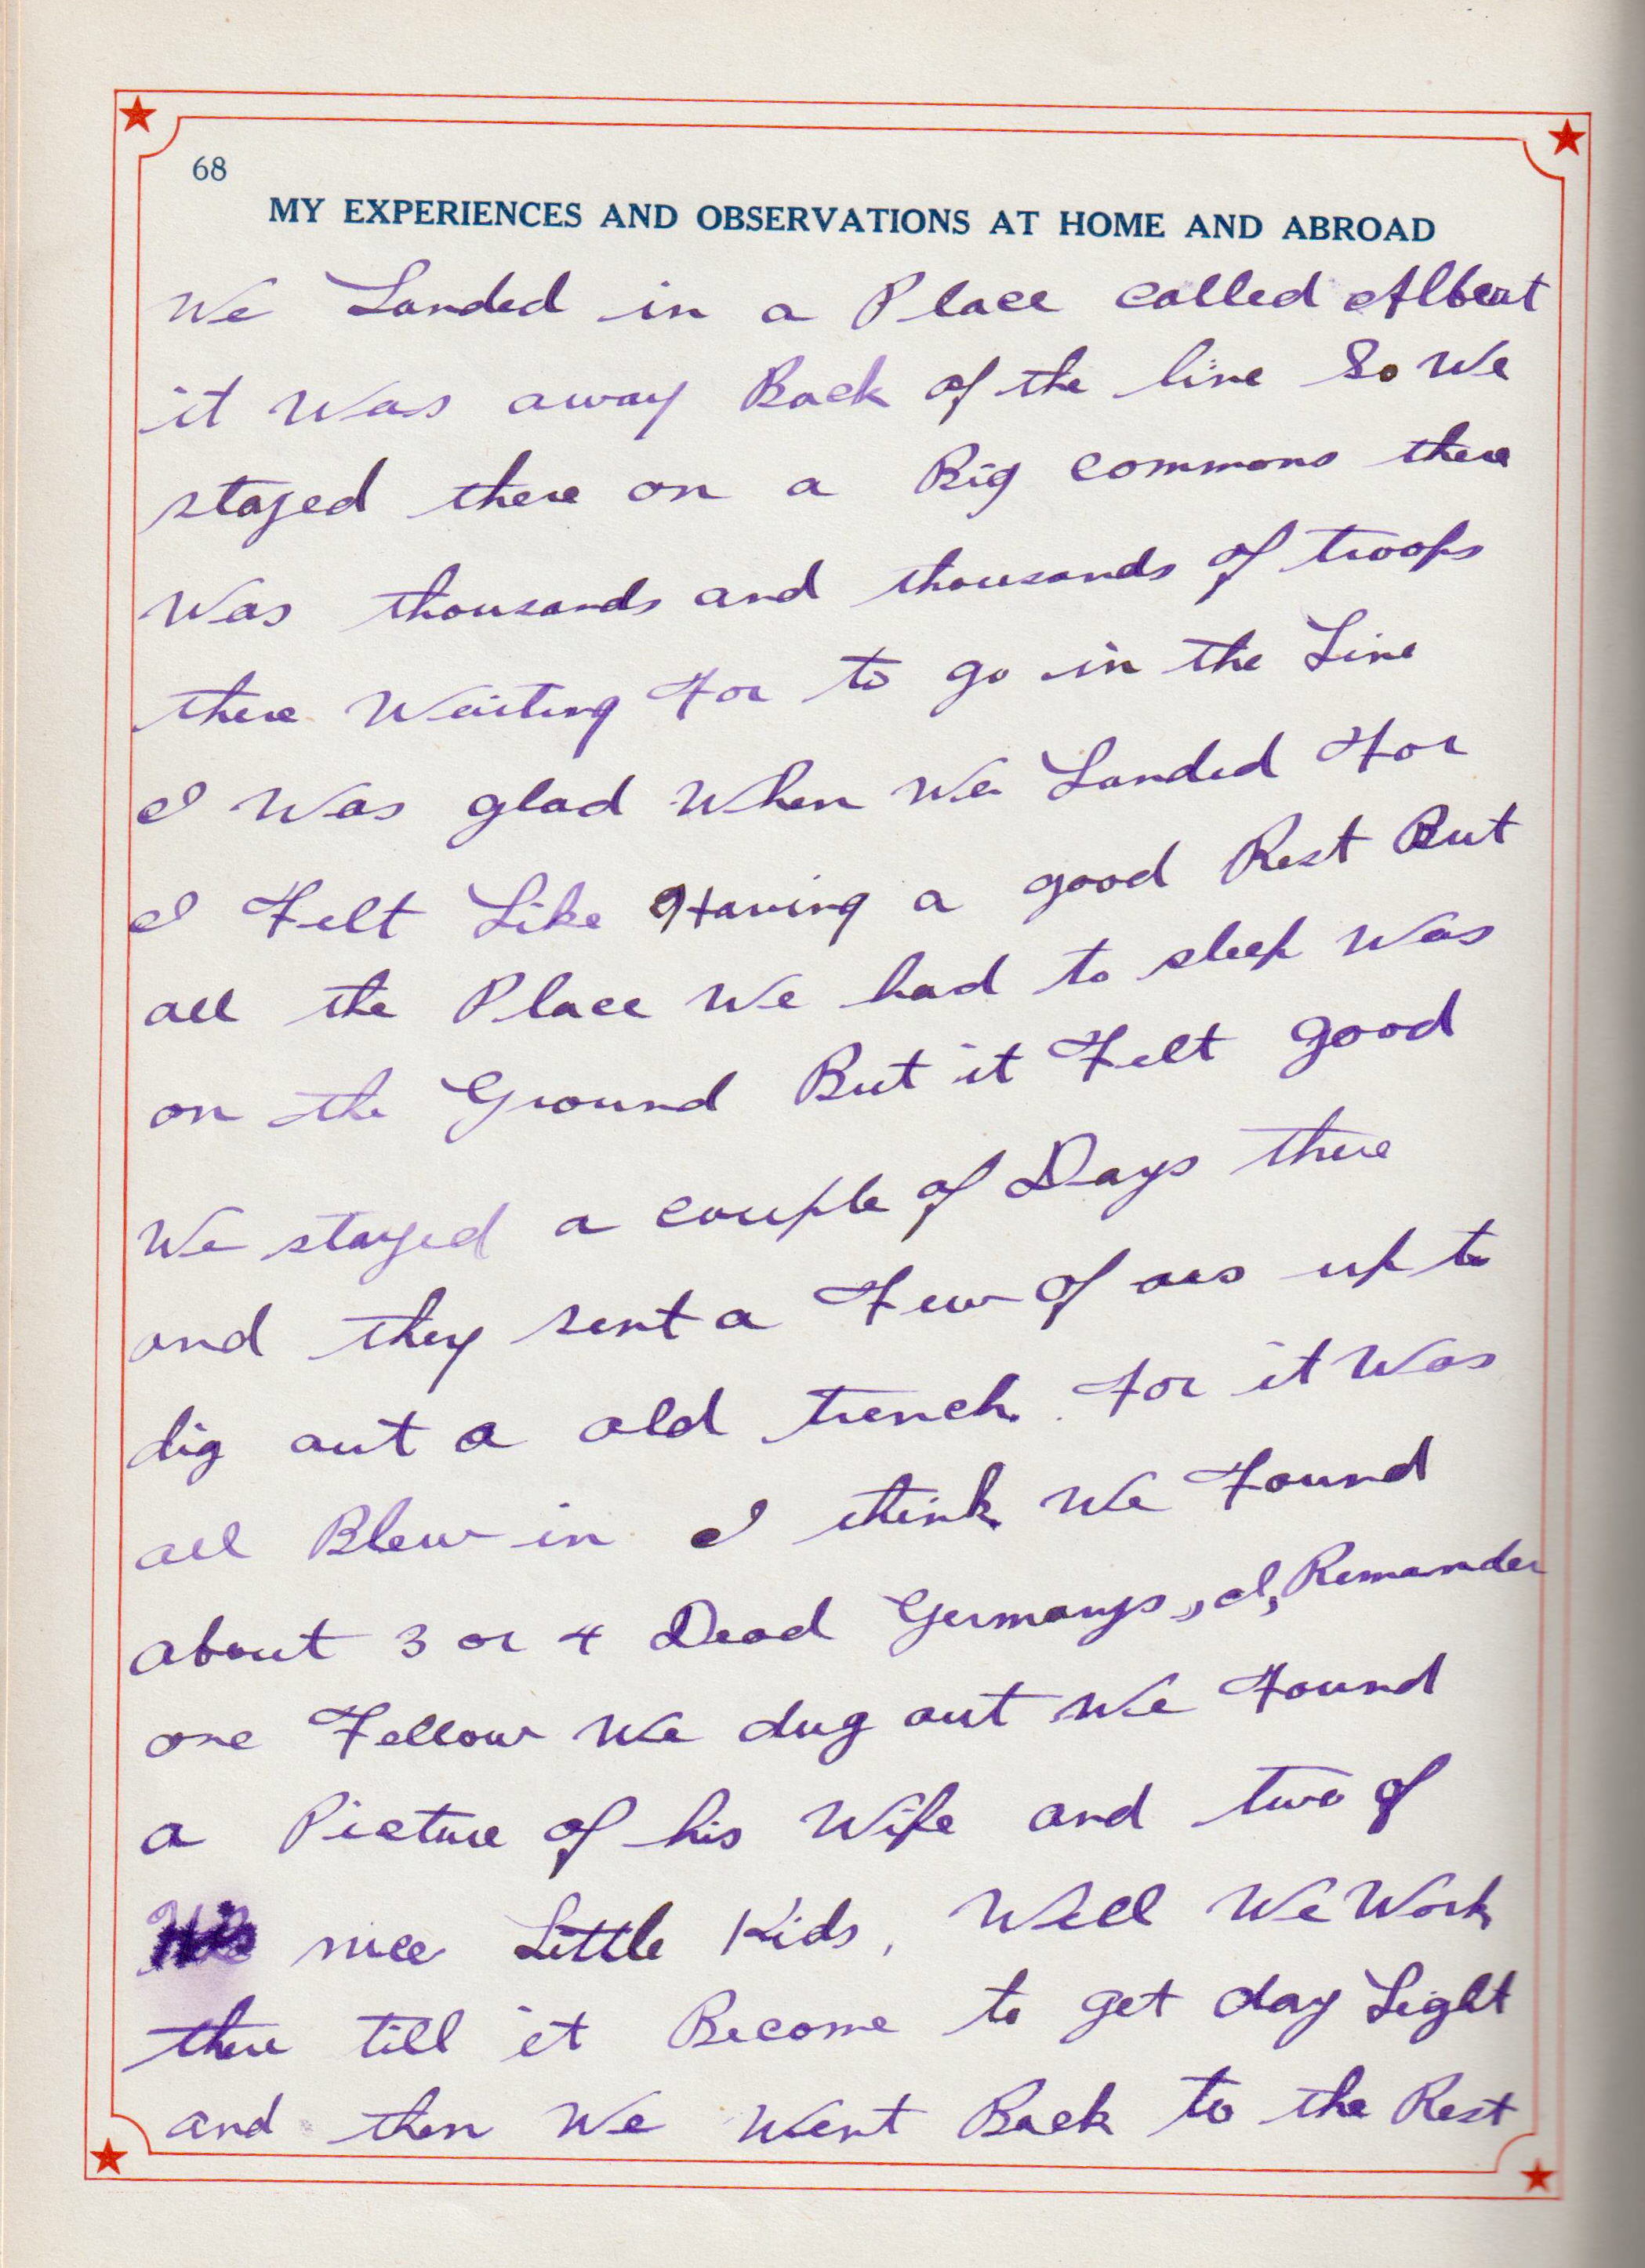 68
MY EXPERIENCES AND OBSERVATIONS AT HOME AND ABROAD
We Landed in a Place called Albeart
it Was away Back of the line So We
stayed there on a Big commons there
Was thousands and thousands of troops
there Waiting For to go in the Line
I Was glad When We Landed For
I Felt Like Having a good Rest But
all the Place We had to sleep Was
on the Ground But it Felt good
We stayed a couple of Days there
and they sent a Few of us up to
dig out a old trench. For it Was
all Blew in I think We Found
about 3 or 4 Dead Germanys,, I, Remamder
one Fellow We dug out We Found
a Picture of his Wife and two of
His nice Little Kids, Well We Work
there till it Become to get day Light
and then We Went Back to the Rest